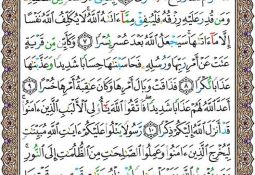 وَمَن قُدِرَ عَلَيْهِ رِزْقُهُ فَلْيُنفِقْ مِمَّآ ءَاتَىٰهُ ٱللَّهُ لَا يُكَلِّفُ ٱللَّهُ نَفْسًا
إِلَّا مَآ ءَاتَىٰهَا سَيَجْعَلُ ٱللَّهُ بَعْدَ عُسْرٍ يُسْرًا ٧ وَكَأَيِّن مِّن قَرْيَةٍ
عَتَتْ عَنْ أَمْرِ رَبِّهَا وَرُسُلِهِۦ فَحَاسَبْنَٰهَا حِسَابًا شَدِيدًا وَعَذَّبْنَٰهَا
عَذَابًا نُّكْرًا ٨ فَذَاقَتْ وَبَالَ أَمْرِهَا وَكَانَ عَٰقِبَةُ أَمْرِهَا خُسْرًا ٩
أَعَدَّ ٱللَّهُ لَهُمْ عَذَابًا شَدِيدًا فَٱتَّقُوا۟ ٱللَّهَ يَٰٓأُو۟لِى ٱلْأَلْبَٰبِ ٱلَّذِينَ ءَامَنُوا۟
قَدْ أَنزَلَ ٱللَّهُ إِلَيْكُمْ ذِكْرًا ١٠ رَّسُولًا يَتْلُوا۟ عَلَيْكُمْ ءَايَٰتِ ٱللَّهِ مُبَيِّنَٰتٍ
لِّيُخْرِجَ ٱلَّذِينَ ءَامَنُوا۟ وَعَمِلُوا۟ ٱلصَّٰلِحَٰتِ مِنَ ٱلظُّلُمَٰتِ إِلَى ٱلنُّورِ